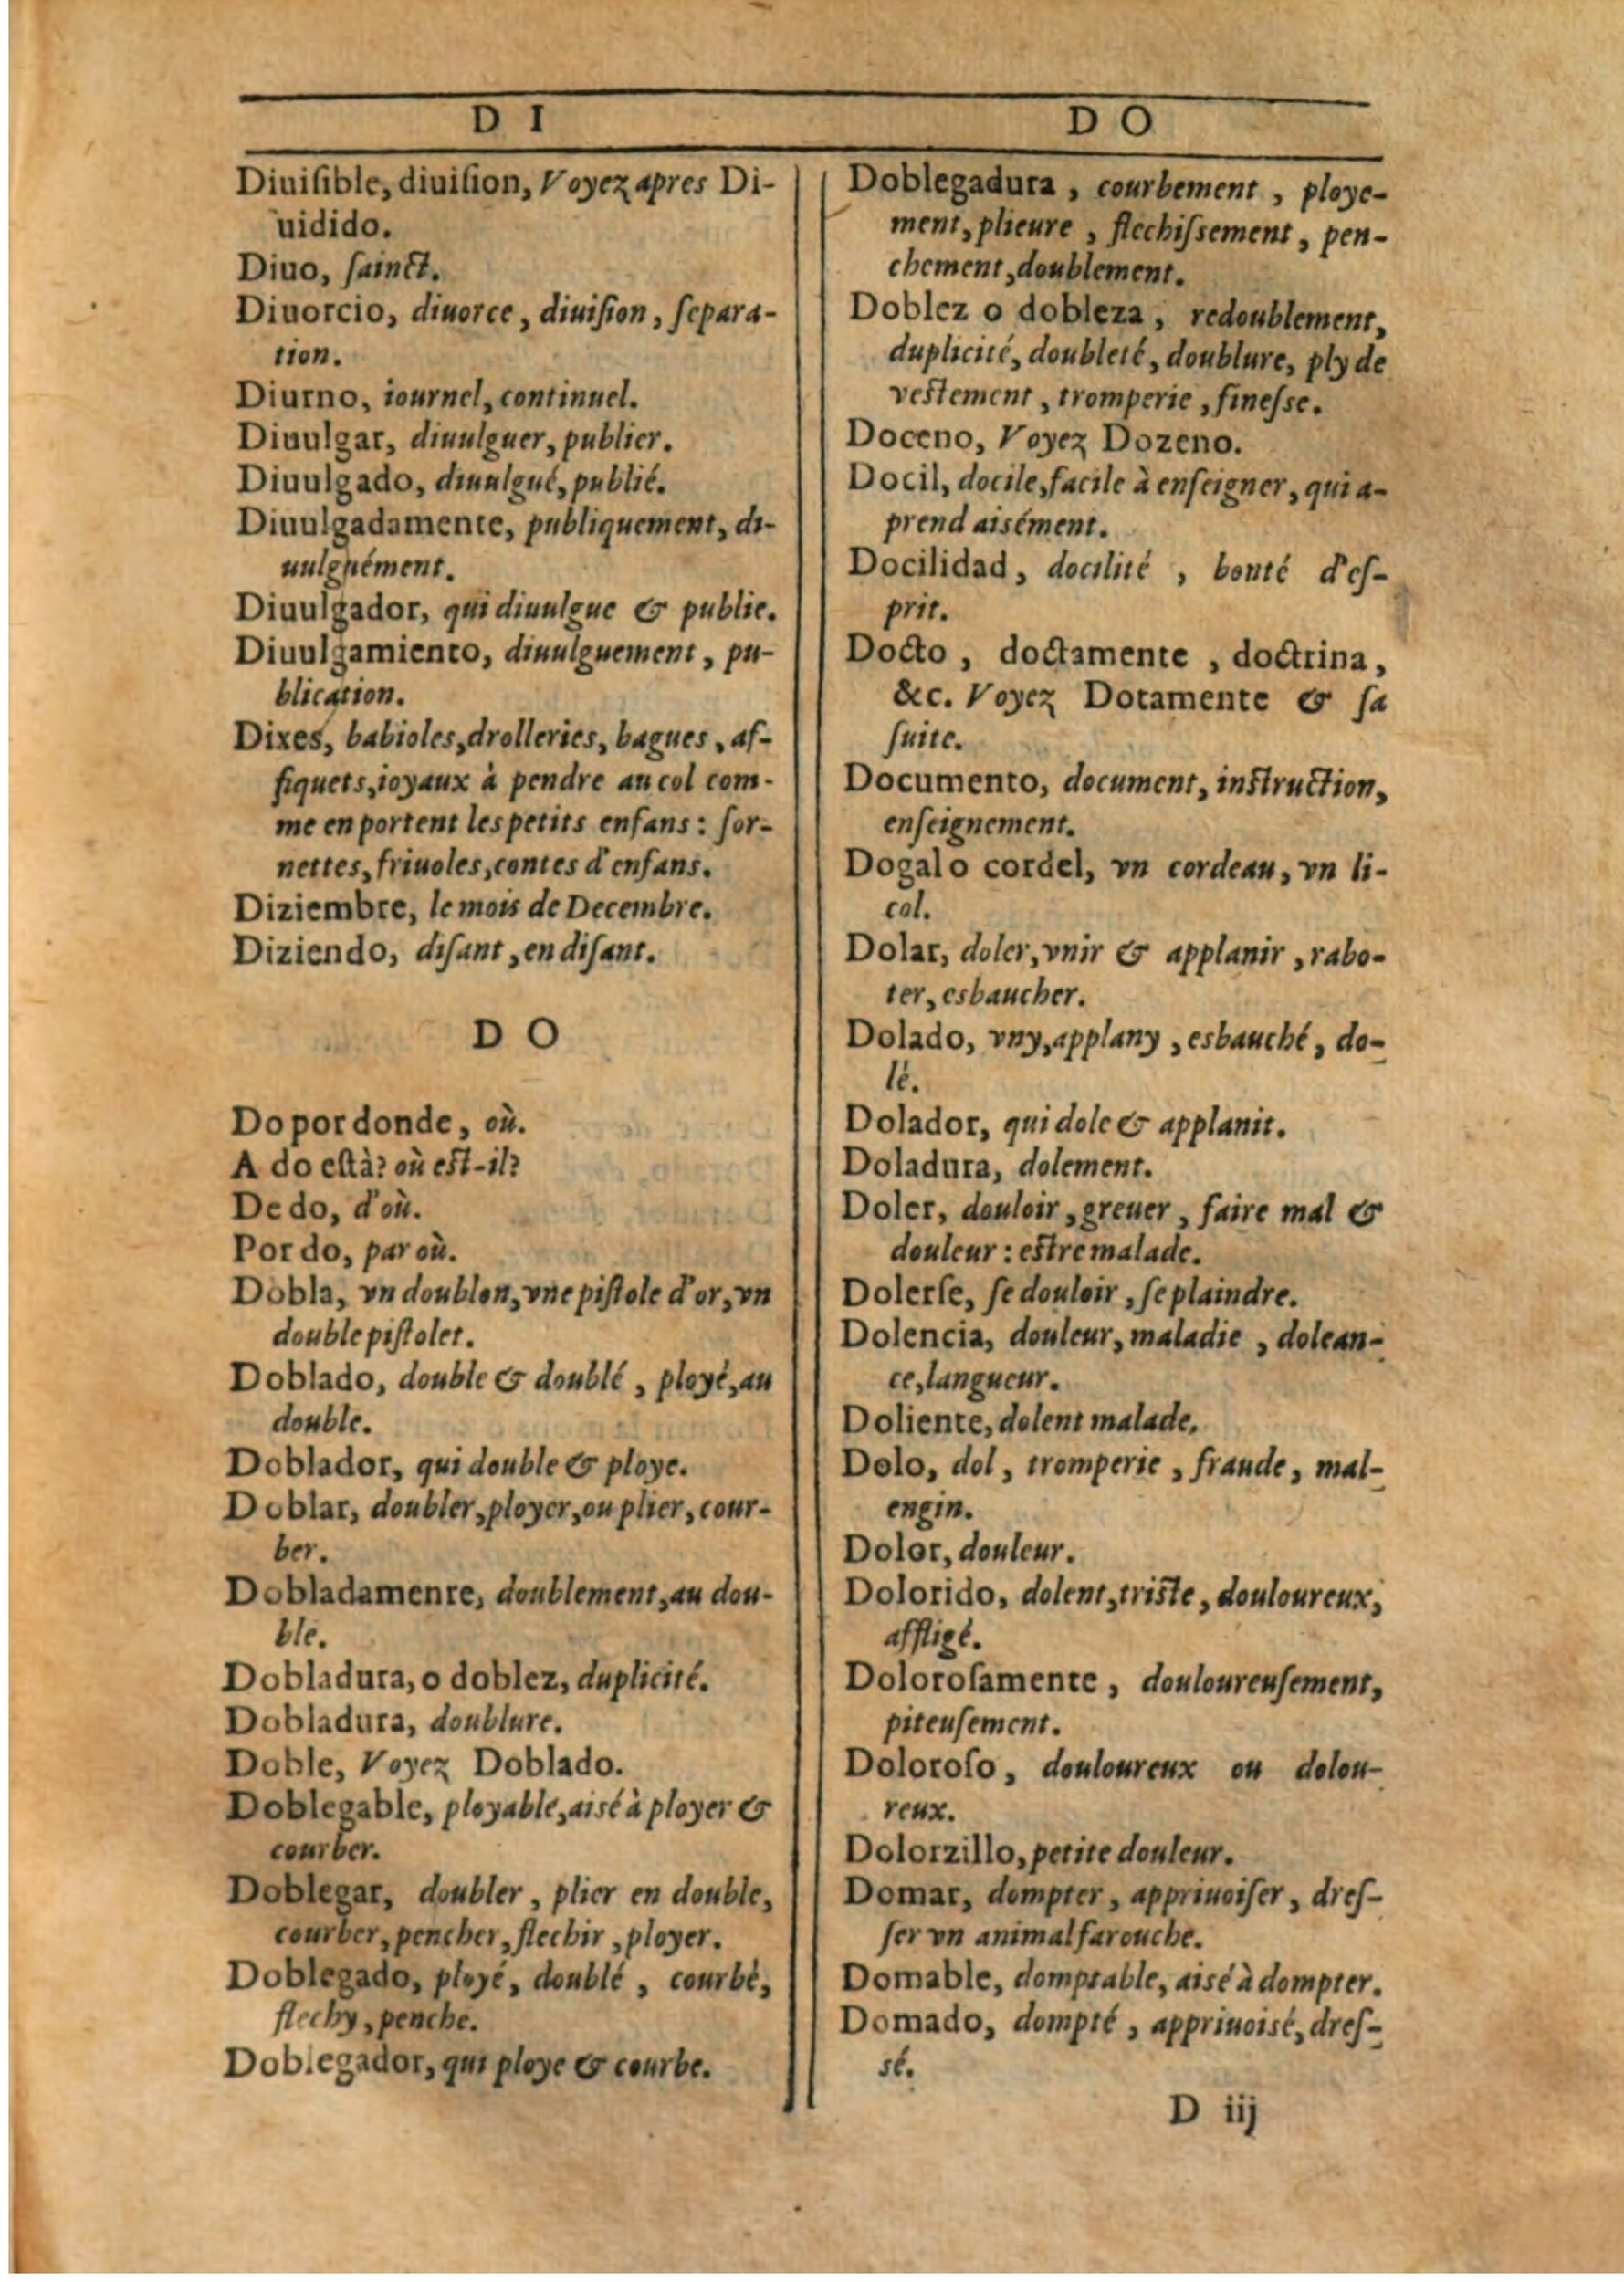 D I
Diuiſible, diuiſion, Voyez apres Di-
uidido.
Diuo, ſainct.
Diuorcio, diuorce, diuiſion, ſepara-
tion.
Diurno, iournel, continuel.
Diuulgar, diuulguer, publier.
Diuulgado, diuulgué, publié.
Diuulgadamente, publiquement, di-
uulguément.
Diuulgador, qui diuulgue & publie.
Diuulgamiento, diuulguement, pu-
blication.
Dixes, babioles, drolleries, bagues, af-
fiquets, ioyaux à pendre au col com-
me en portent les petits enfans : ſor-
nettes, friuoles, contes d'enfans.
Diziembre, le mois de Decembre.
Diziendo, diſant, en diſant.
D O
Do por donde, où.
A do eſtà? où eſt-il?
De do, d'où.
Por do, par où.
Dobla, vn doublon, vne piſtole d'or, vn
double piſtolet.
Doblado, double & doublé, ployé, au
double.
Doblador, qui double & ploye.
Doblar, doubler, ployer, ou plier, cour-
ber.
Dobladamente, doublement, au dou-
ble.
Dobladura, o doblez, duplicité.
Dobladura, doublure.
Doble, Voyez Doblado.
Doblegable, ployable, aisé à ployer &
courber.
Doblegar, doubler, plier en double,
courber, pencher, flechir, ployer.
Doblegado, ployé, doublé, courbé,
flechy, penche.
Doblegador, qui ploye & courbe.
D O
Doblegadura, courbement, ploye-
ment, plieure, flechiſſement, pen-
chement, doublement.
Doblez o dobleza, redoublement,
duplicité, doubleté, doublure, ply de
veſtement, tromperie, fineſſe.
Doceno, Voyez Dozeno.
Docil, docile, facile à enſeigner, qui a-
prend aisément.
Docilidad, docilité, bonté d'eſ-
prit.
Docto, doctamente, doctrina,
&c. Voyez Dotamente & ſa
ſuite.
Documento, document, inſtruction,
enſeignement.
Dogal o cordel, vn cordeau, vn li-
col.
Dolar, doler, vnir & applanir, rabo-
ter, esbaucher.
Dolado, vny, applany, esbauché, do-
lé.
Dolador, qui dole & applanit.
Doladura, dolement.
Doler, douloir, greuer, faire mal &
douleur : eſtre malade.
Dolerſe, ſe douloir, ſe plaindre.
Dolencia, douleur, maladie, dolean-
ce, langueur.
Doliente, dolent malade.
Dolo, dol, tromperie, fraude, mal-
engin.
Dolor, douleur.
Dolorido, dolent, triſte, douloureux,
affligé.
Doloroſamente, douloureuſement,
piteuſement.
Doloroſo, douloureux ou dolou-
reux.
Dolorzillo, petite douleur.
Domar, dompter, appriuoiſer, dreſ-
ſer vn animal farouche.
Domable, domptable, aisé à dompter.
Domado, dompté, appriuoisé, dreſ-
sé.
D iij